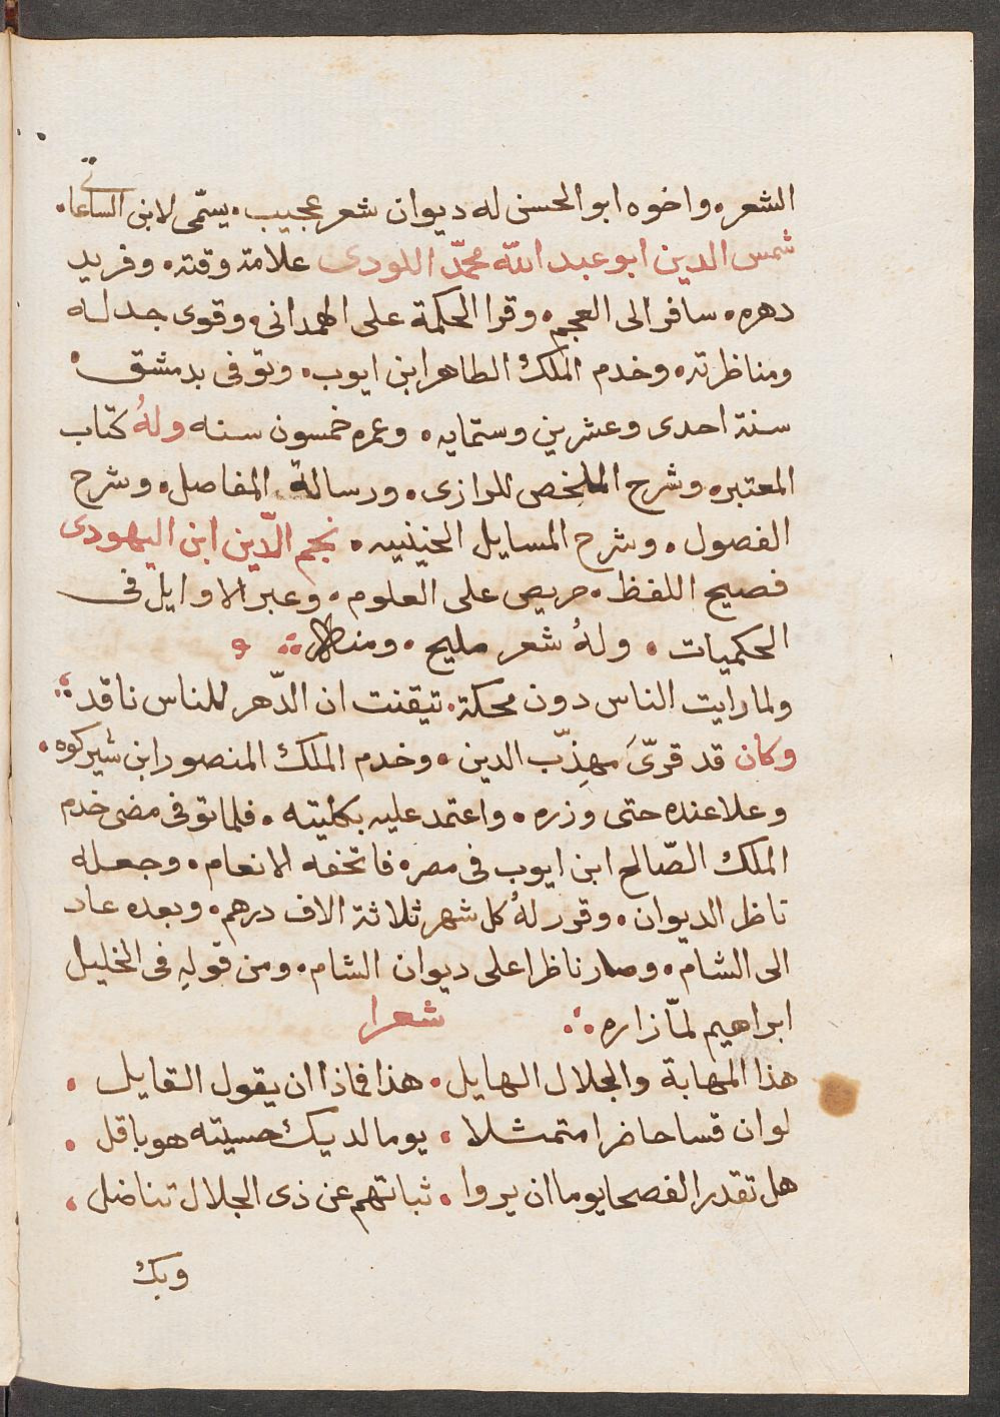 الشعر. واخوه ابو الحسن له ديوان شعر عجيب. يسمّى لابن الساعاتى.
شمس الدين ابو عبد الله محمّد اللودى علامة وقته. وفريد
دهره. سافر الى العجم. وقرا الحكمة على الهمدانى. وقوى جدله
ومناظرته. وخدم الملك الطاهر ابن ايوب. وتوفى بدمشق.
سنة احدى وعشرين وستمايه. وعمره خمسون سنه ولهُ كتاب
المعتبر. وشرح الملخص للرازى. ورسالة المفاصل. وشرح
الفصول. وشرح المسايل الحنينيه. نجم الدّين ابن اليهودى
فصيح اللفظ. حريص على العلوم. وعبر الاوايل فى
الحكميات. ولهُ شعر مليح. ومنه
ولما رايت الناس دون محكة. تيقنت ان الدّهر للناس ناقد
وكان قد قرّىَ مهذّب الدين. وخدم الملك المنصور ابن شيركوه.
وعلا عنده حتى وزره. واعتمد عليه بكليته. فلما توفى مضى خدم
الملك الصّالح ابن ايوب فى مصر. فاتحفه الانعام. وجعله
ناظر الديوان. وقرر لهُ كل شهر ثلاثة الاف درهم. وبعده عاد
الى الشام. وصار ناظرا على ديوان الشام. ومن قولهِ فى الخليل
ابراهيم لمّا زاره. شعرا
هذا المهابة والجلال الهايل. هذا فماذا ان يقول القايل.
لو ان قسا حاضرا متمثلا. يوما لديك حسبته هو باقل.
هل تقدر الفصحا يوما ان يروا. ثباتهم عن ذى الجلال تناضل.
وبك